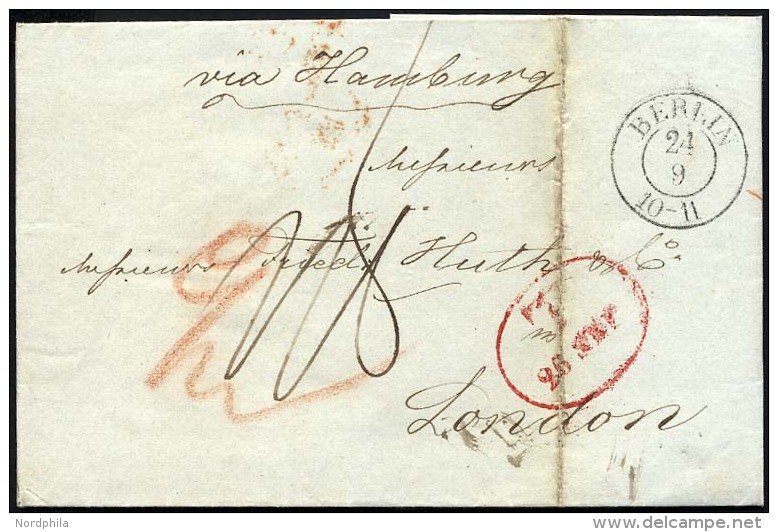 via Hamburg
BERLIN
24
9
10-11
Messieurs
Messieurs Friedr. Huth & Co.
28 SEP
London
Nordphila
delcampe.net